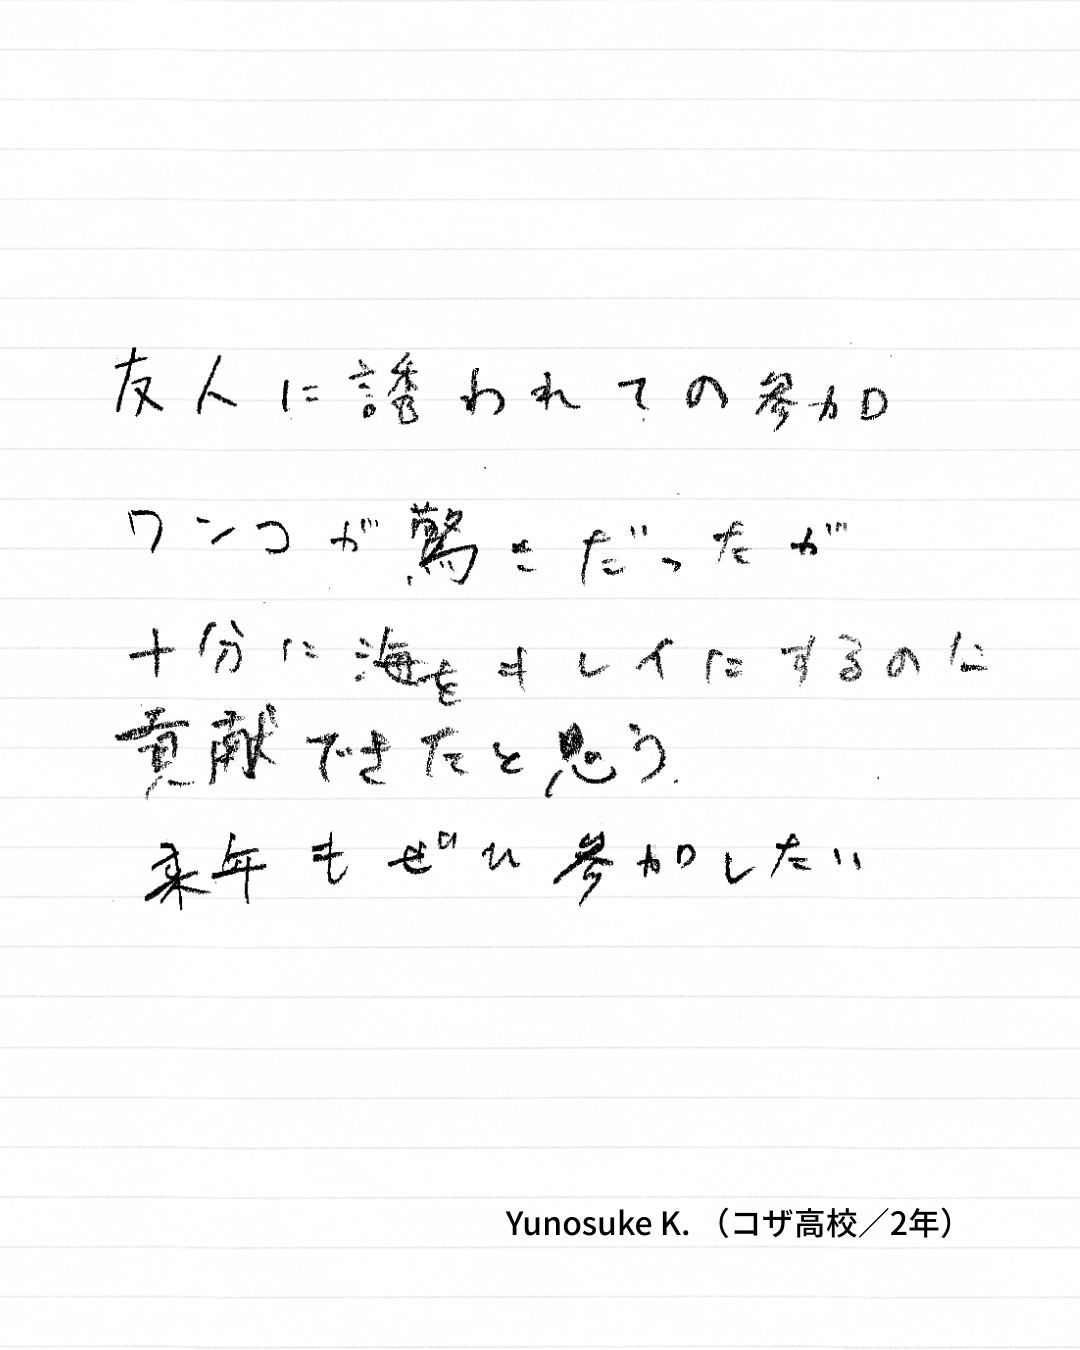 友人に誘われての参加
ワンコが驚きだったが
十分に海をキレイにするのに
貢献できたと思う.
来年もぜひ参加したい
Yunosuke K. （コザ高校／2年）